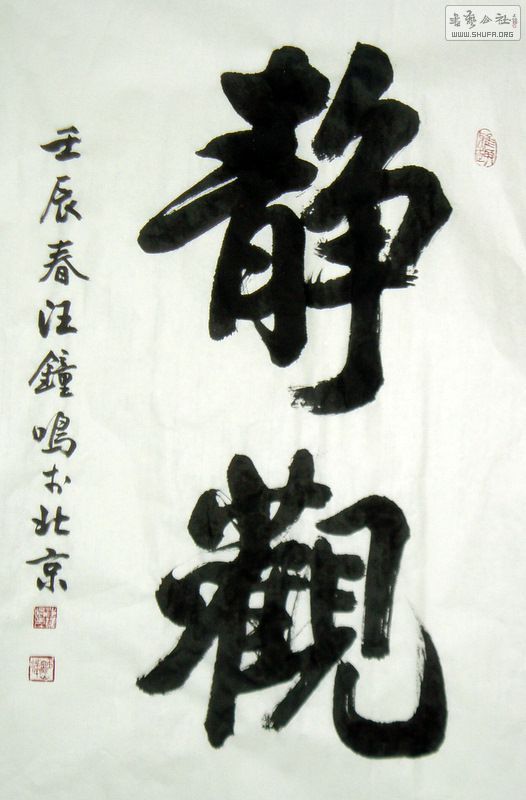 静觀
壬辰春汪鐘鳴於北京
书艺公社
WWW.SHUFA.ORG